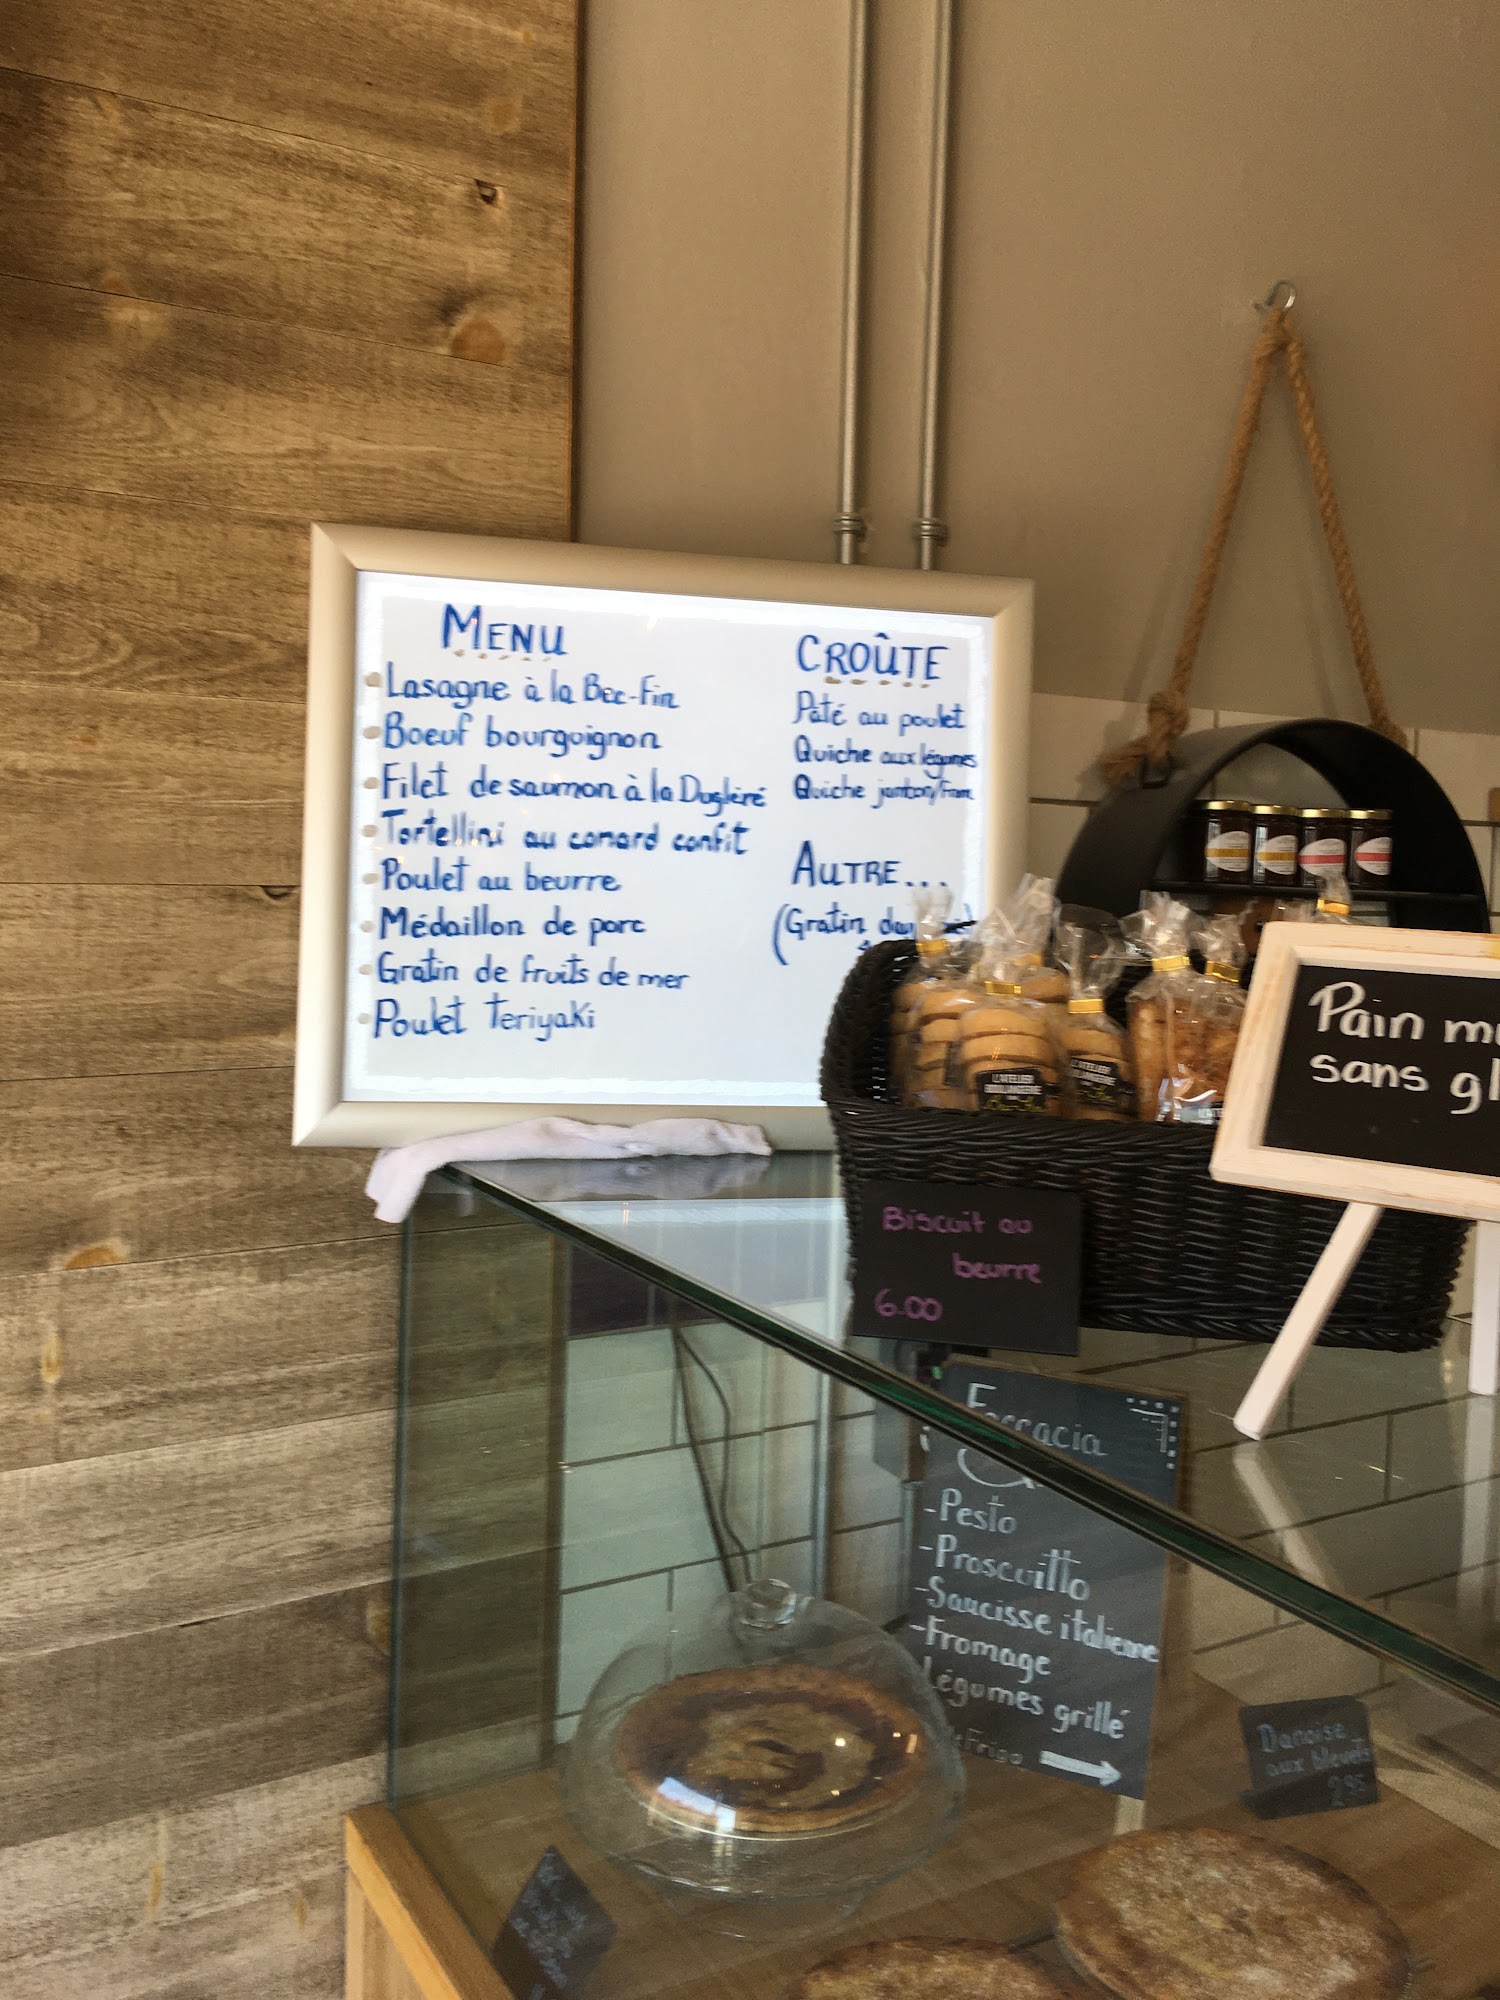 MENU
Lasagne à la Bec-Fin
Boeuf bourguignon
Filet de saumon à la Dugléré
Tortellini au canard confit
Poulet au beurre
Médaillon de porc
Gratin de fruits de mer
Poulet Teriyaki
CROÛTE
Pâté au poulet
Quiche aux légumes
Quiche jambon/From
AUTRE...
(Gratin
Pain
sans
L'ATELIER
BOULANGERIE
L'ATELIER
Biscuit au
beurre
6.00
-Pesto
-Proscuitto
-Saucisse italienne
-Fromage
Légumes grillé
Frigo
Danoise
aux bleuets
2.95